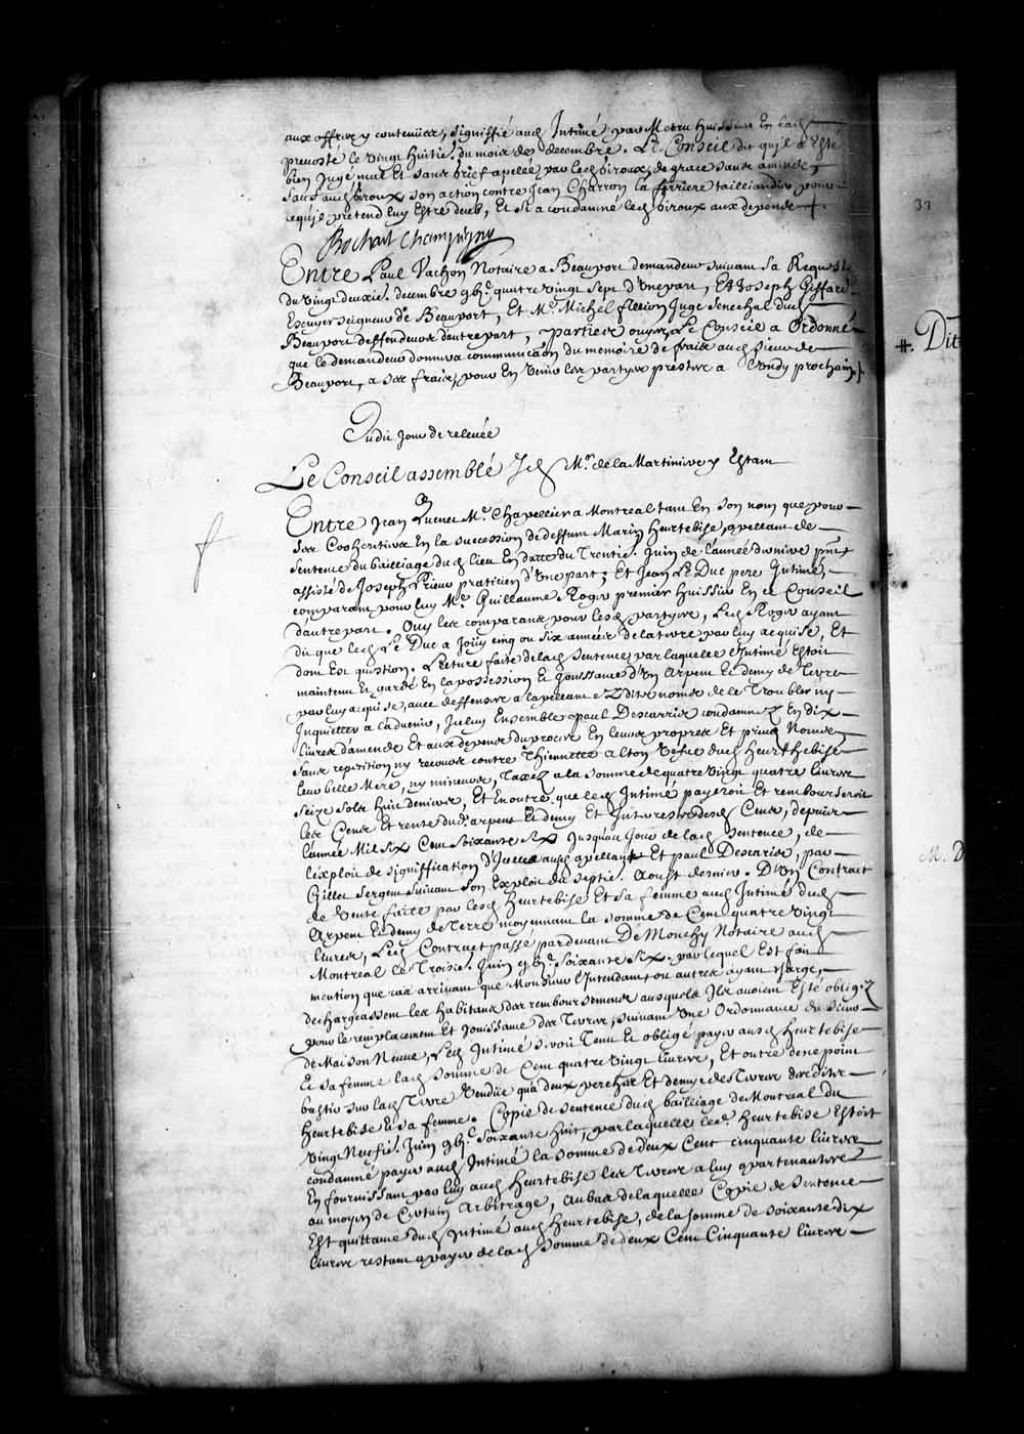 aux offres y contenües, signiffié aud Intimé par Metru huissier En lad
prevosté le vingt huitie. du mois de decembre. Le Conseil dit qu'il a Esté
bien Jugé mal Et sans grief apellée par led hiroux, de grace sans amende,
sauf aud hiroux son action contre Jean Charron la ferriere taillandier pour
ce qu'il pretend luy Estre deub, Et si a condamné led hiroux aux depens
Bochart Champigny
Entre Paul Vachon Notaire a Beauport demandeur suivant sa Requeste
du vingt deuxie. decembre gbic. quatre vingt sept d'Une part, Et Joseph Giffard
Escuyer seigneur de Beauport, Et Mr. Michel fillion Juge senechal dud
Beauport deffendeurs d'autre part, parties ouyes, Le Conseil a Ordonné
que le demandeur donnera communicaon du memoire de frais aud sieur de
Beauport, a ses frais, pour En Venir les partyes prestes a Lundy prochain
Dudit Jour de relevée
Le Conseil assemblé Jcel Mr. de la Martiniere y Estant
Entre Jean Quenet Me. Chapellier a Montreal tant En son nom que pour
ses Coheritiers En la succession de deffunt Marin Heurtebise, apellant de
sentence du bailliage dud lieu En datte du Trentie. Juin de l'année derniere pnt
assisté de Joseph Prieur praticien d'Une part; Et Jean Le Duc pere Intimé,
comparant pour luy Me. Guillaume Roger premier huissier En ce Conseil
d'autre part. Ouy les comparans pour lesd partyes, Led Roger ayant
dit que led Le Duc a Jouy cinq ou six années de la terre par luy acquise, Et
dont Est question. Lecture faite de lad sentence par laquelle l'Intimé Estoit
maintenu Et gardé En la possession Et Jouissance d'Un Arpent Et demy de Terre
par luy acquise, avec deffenses a l'apellant Esdits noms de le Troubler ny
Inquietter a l'advenir, Iceluy Ensemble paul Descarris condamnez En dix
livres d'amende Et aux depens du procez En leurs propres Et privez Noms
sans repetition ny recours contre Thiennette Alton Vefve dud Heurthebise
leur belle Mere, ny mineurs, Taxez a la somme de quatre vingt quatre livres
seize sols huit deniers, Et En outre que led Intimé payeroit Et rembourseroit
les Cens Et rente dud. arpent Et demy Et Interests desd Cens, depuis
l'année Mil six Cent soixante six Jusqu'au Jour de lad sentence, de
l'exploit de signiffication d'Icelle aud apellant Et paul Descaris, par
Gilles sergent suivant son Exploit du septie. Aoust dernier. D'Un Contract
de Vente faite par led Heurtebise Et sa femme aud Intimé dud
Arpent Et demy de Terre moyennant la somme de Cent quatre vingt
livres, Led Contract passé pardevant De Monchy Notaire aud
Montreal le Troisie. Juin gbic. soixante six. par lequel Est fait
mention que cas arrivant que Monsieur l'Intendant ou autres ayant charge,
dechargeassent les habitans des remboursemens ausquels Ils avoient Esté obligez
pour le remplacement Et Jouissance des Terres, suivant Une Ordonnance du sieur
de Maison Neuve, Led Intimé seroit Tenu Et obligé payer aud Heurtebise
Et sa femme lad somme de Cent quatre vingt livres, Et outre de ne point
bastir sur lad Terre Vendüe qu'a deux perches Et demye des Terres desdits
Heurtebise Et sa femme. Copie de sentence dud bailliage de Montreal du
vingt Neufie. Juin gbic. soixante huit, par laquelle led. Heurtebise Estoit
condamné payer aud Intimé la somme de deux Cent cinquante livres
En fournissant par luy aud Heurtebise les Terres a luy apartenantes
au moyen de Certain arbitrage, au bas de laquelle Copie de sentence
Est quittance dud Intimé aud Heurtebise, de la somme de soixante dix
livres restant a payer de lad somme de deux Cent Cinquante livres
33
#. Dit
M. D